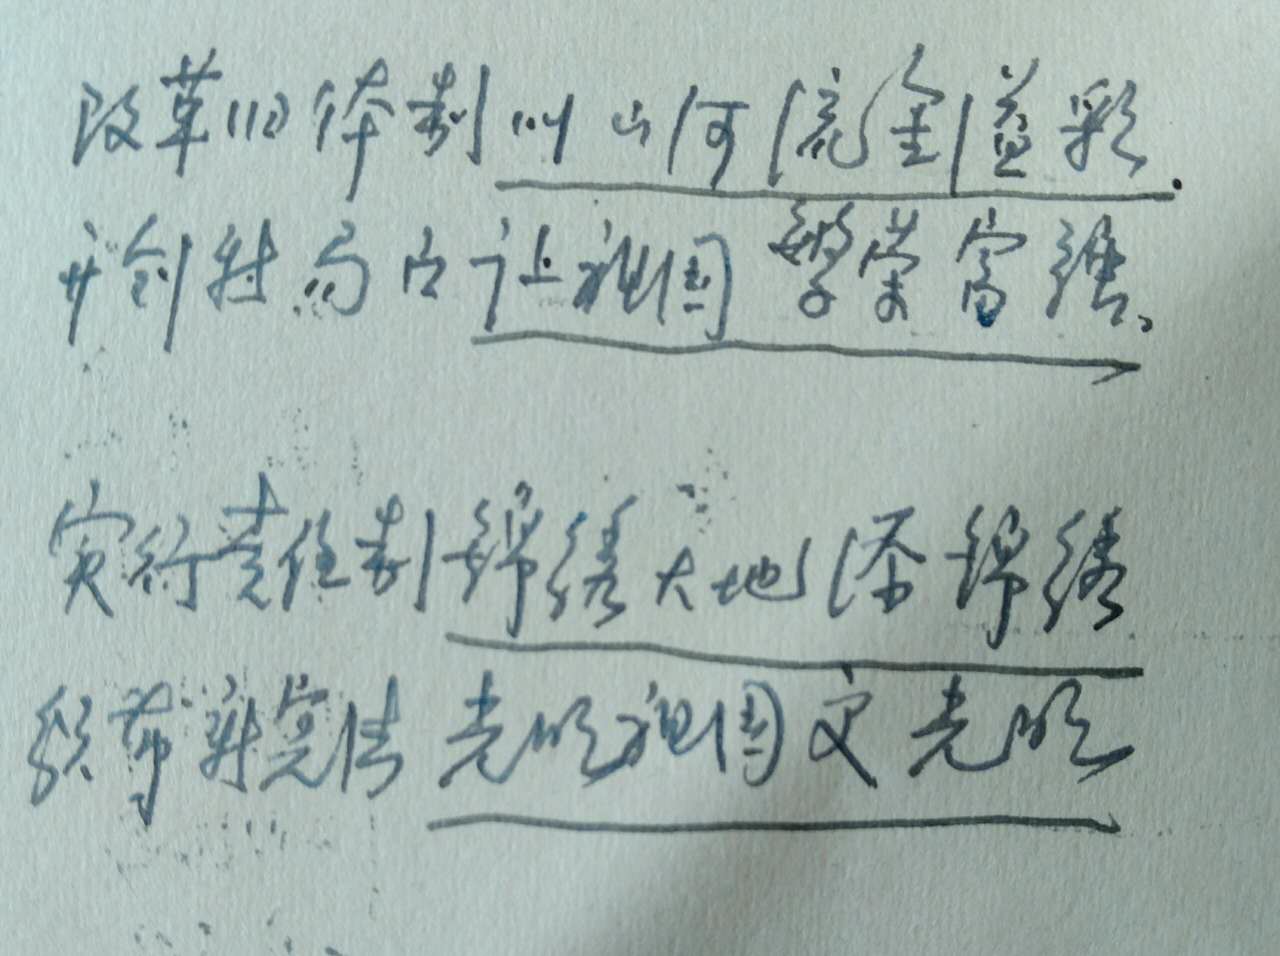 改革旧体制以山河流金溢彩.
开创新局面让祖国繁荣富强、
实行责任制锦绣大地添锦绣
颁布新宪法光明祖国更光明